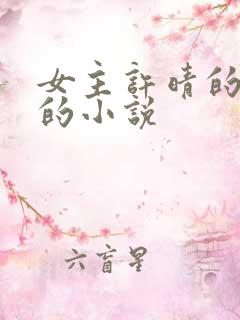 女主許晴的
的小説
六盲星